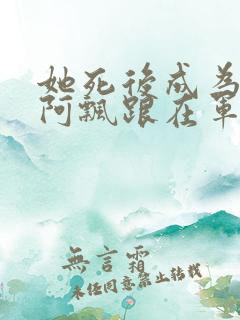 她死後成為
阿飄跟在軍
無言霜
未經同意禁止轉載